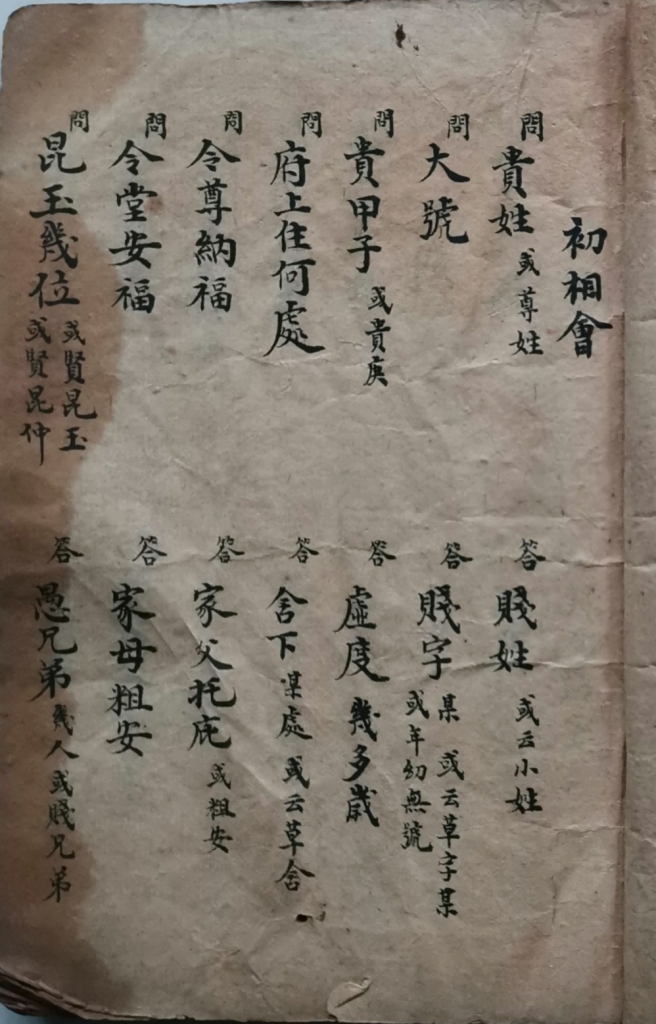 初相會
問 貴姓 或尊姓
答 賤姓 或云小姓
問 大號
答 賤字 某 或云草字某
或年幼無號
問 貴甲子 或貴庚
答 虛度 幾多歲
問 府上住何處
答 舍下 某處 或云草舍
問 令尊納福
答 家父托庇 或粗安
問 令堂安福
答 家母粗安
問 昆玉幾位 或賢昆玉
或賢昆仲
答 愚兄弟 幾人或賤兄弟